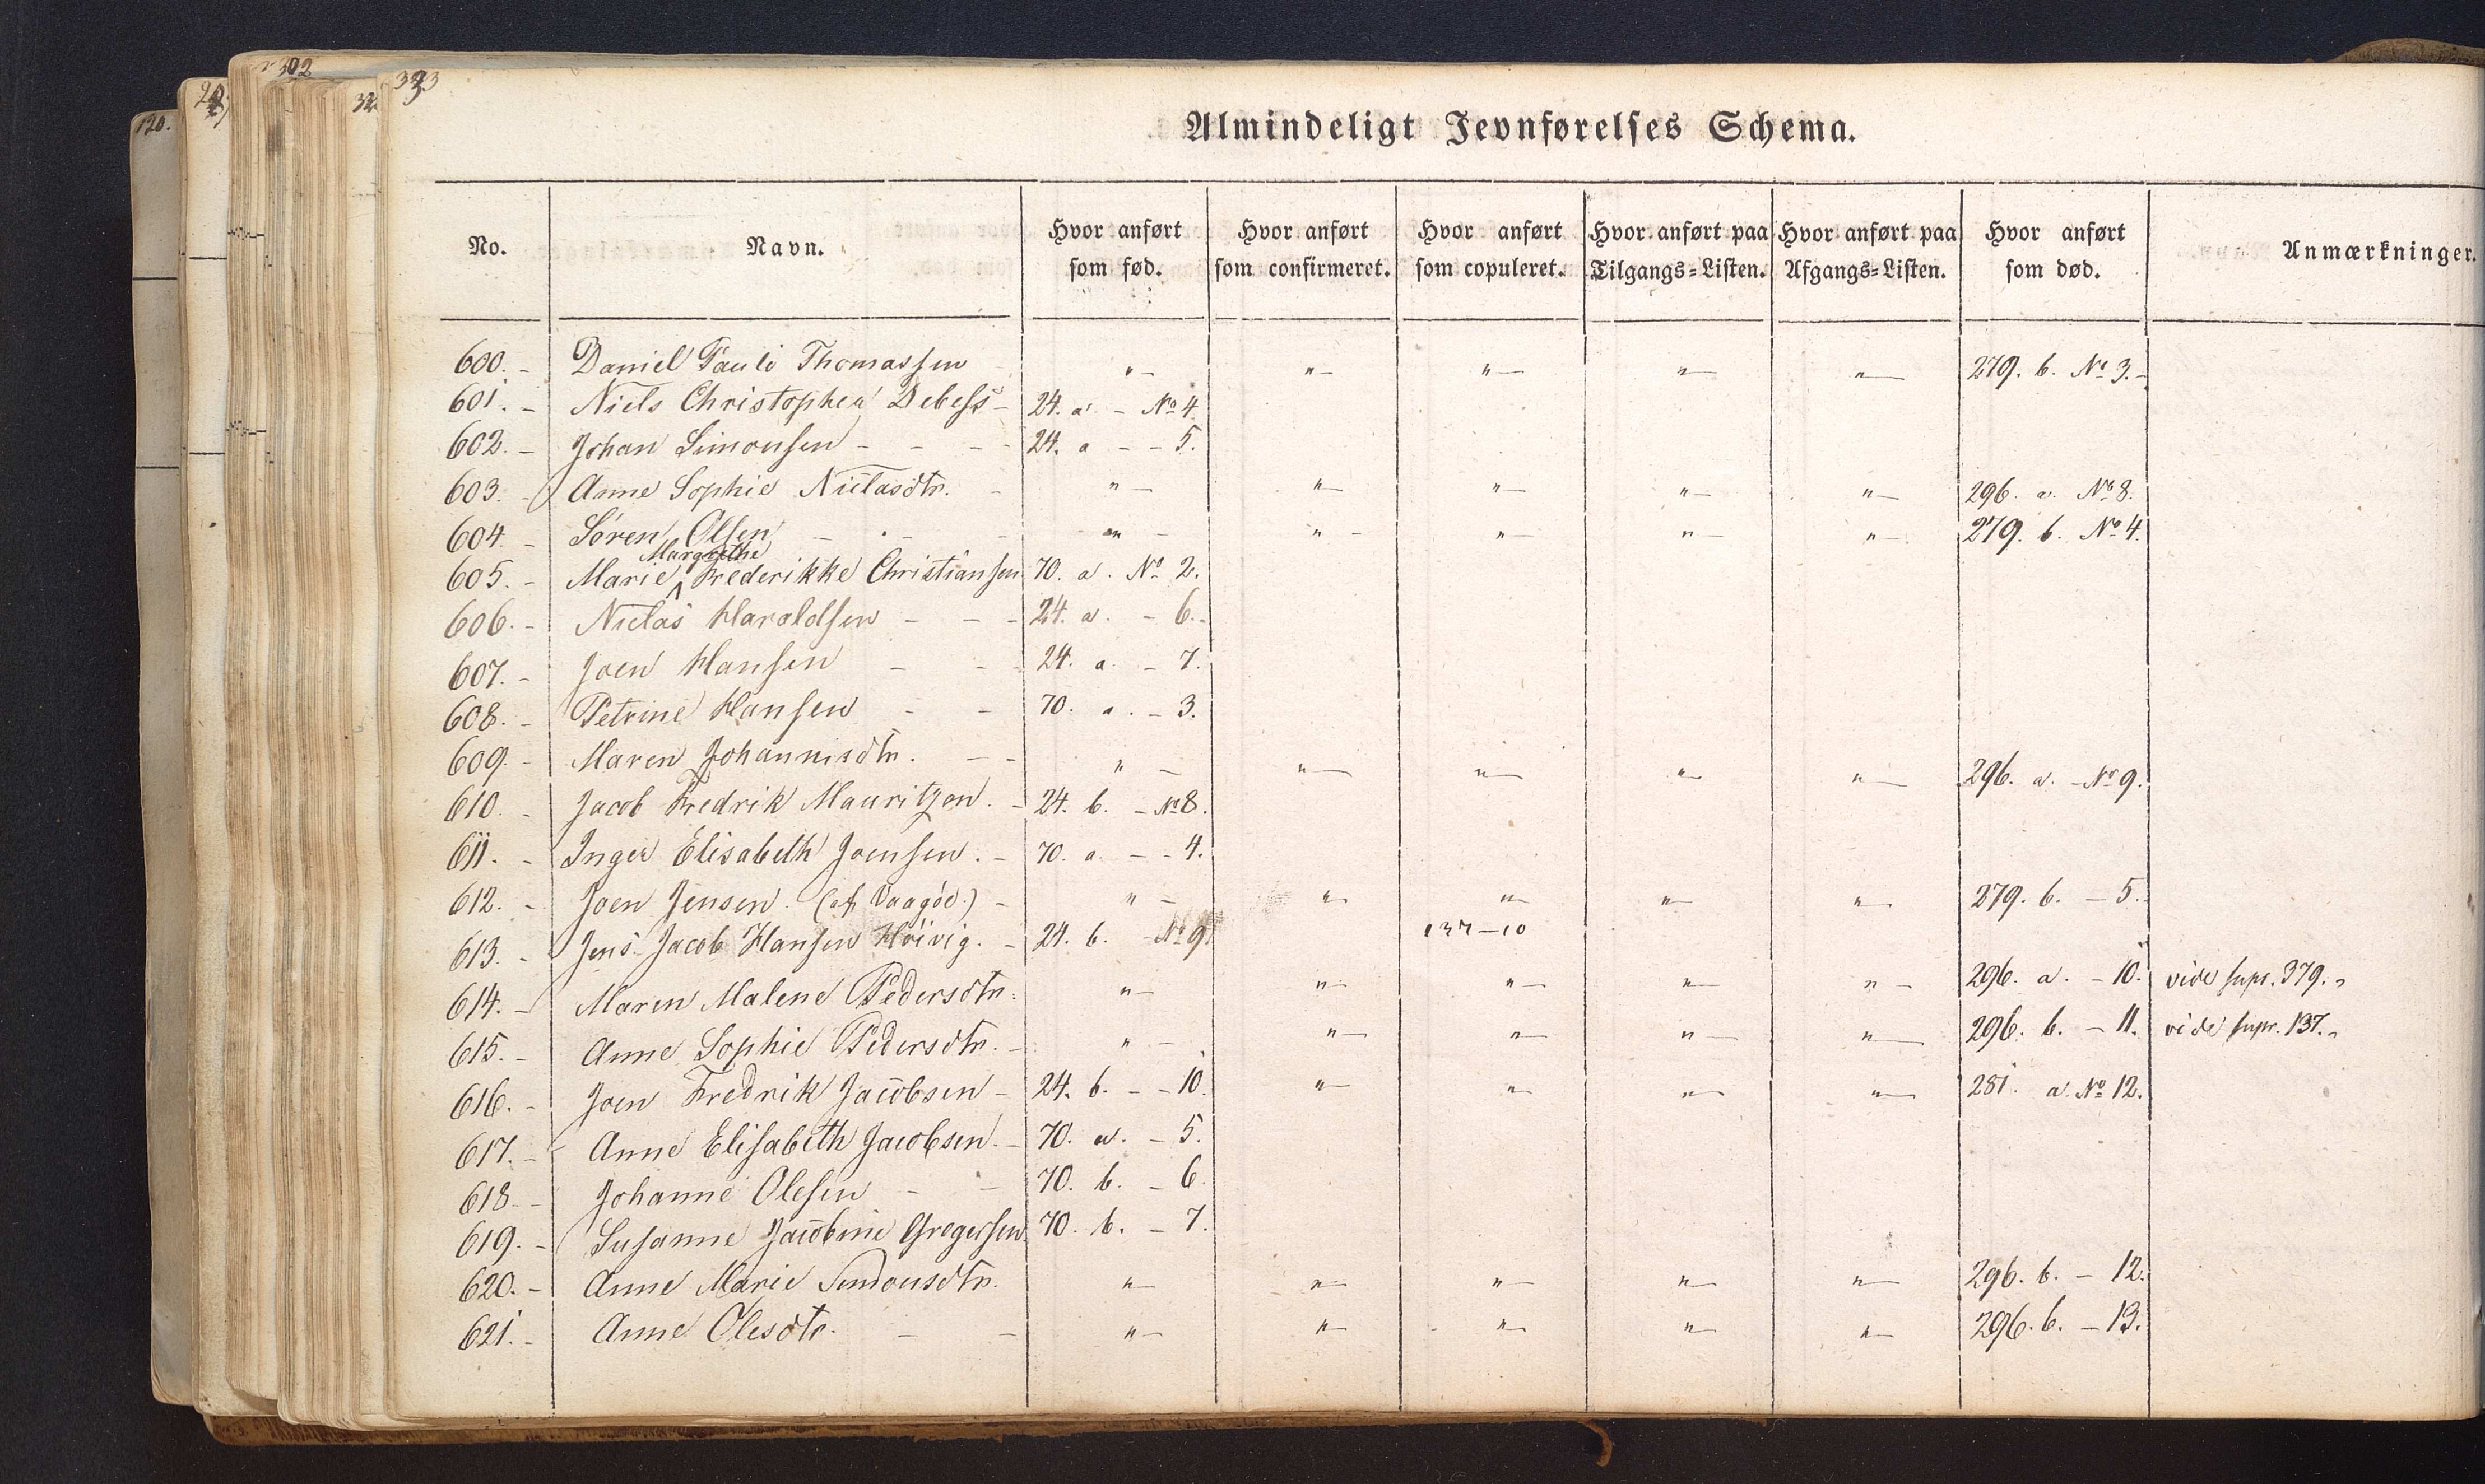 120.
302
333
Almindeligt Jevnførelses Schema.
No. Navn. Hvor anført som fød. Hvor anført som confirmeret. Hvor anført som copuleret. Hvor anført paa Tilgangs-Listen. Hvor anført paa Afgangs-Listen. Hvor anført som død. Anmærkninger.
600. - Daniel Pauli Thomassen " - " - " - " - " - 279. b. No 3. -
601. - Niels Christopher Debess - 24. a. - No 4.
602. - Johan Simonsen - - - 24. a - - 5.
603. - Anne Sophie Niclasdtr. - " - " - " - " - " - 296. a. No 8.
604. - Sören Olsen - - - " - " - " - " - " - 279. b. No 4.
Margrethe
605. - Marie Frederikke Christiansen 70. a. No 2.
606. - Niclas Haraldsen - - - 24. a. - 6. -
607. - Joen Hansen - - 24. a. - 7.
608. - Petrine Hansen - - 70. a. - 3.
609. - Maren Johannisdtr. - - " - " - " - " - " - 296. a. - No 9.
610. - Jacob Fredrik Mauritzen. - 24. b. - No 8.
611. - Inger Elisabeth Joensen. - 70. a. - - 4.
612. - Joen Jensen. (af Vaagöe.) - " - " - " - " - " - 279. b. - 5.
613. - Jens Jacob Hansen Höivig. - 24. b. - No 9. 137-10
614. - Maren Malene Pedersdtr. " - " - " - " - " - 296. a. - 10. vide supr. 379. "
615. - Anne Sophie Pedersdtr. - " - " - " - " - " - 296. b. - 11. vide supr. 137. "
616. - Joen Fredrik Jacobsen - 24. b. - - 10. " - " - " - " - 281. a. No 12.
617. - Anne Elisabeth Jacobsen. - 70. a. - 5.
618. - Johanne Olesen - - 70. b. - 6.
619. - Susanne Jacobine Gregersen. 70. b. - 7.
620. - Anne Marie Simonsdtr. " - " - " - " - " - 296. b. - 12.
621. - Anne Olesdtr. - - " - " - " - " - " - 296. b. - 13.